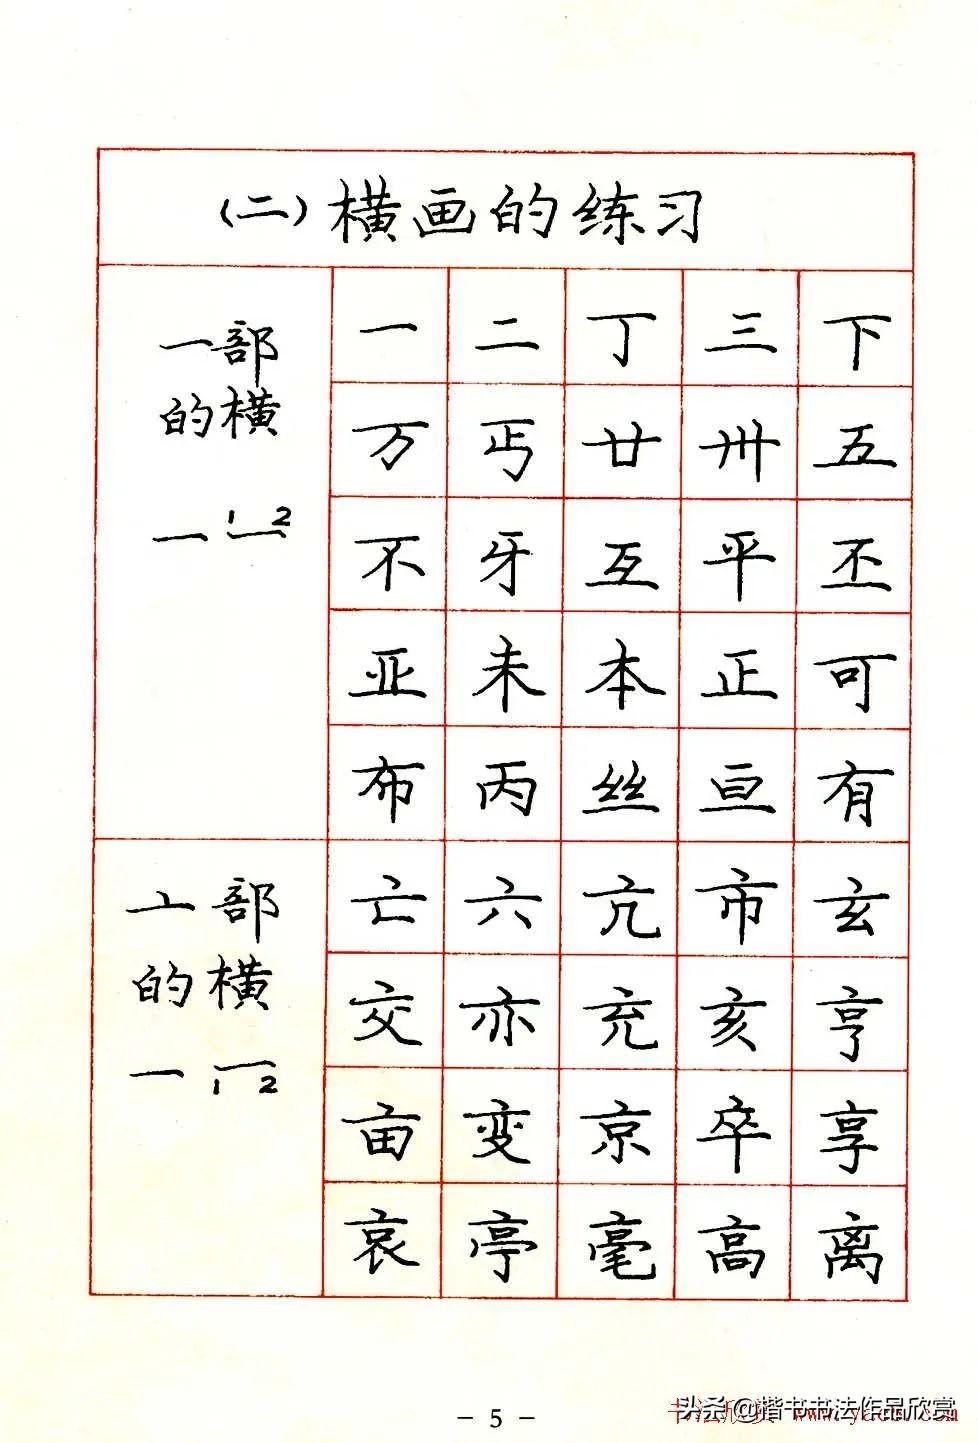 (二)横画的练习
一部
的横
一 1 2
一 二 丁 三 下
万 丐 廿 卅 五
不 牙 互 平 丕
亚 未 本 正 可
布 丙 丝 亘 有
亠部
的横
一 1 2
亡 六 亢 市 玄
交 亦 充 亥 亨
亩 变 京 卒 享
哀 亭 毫 高 离
- 5 -
头条@楷书书法作品欣赏